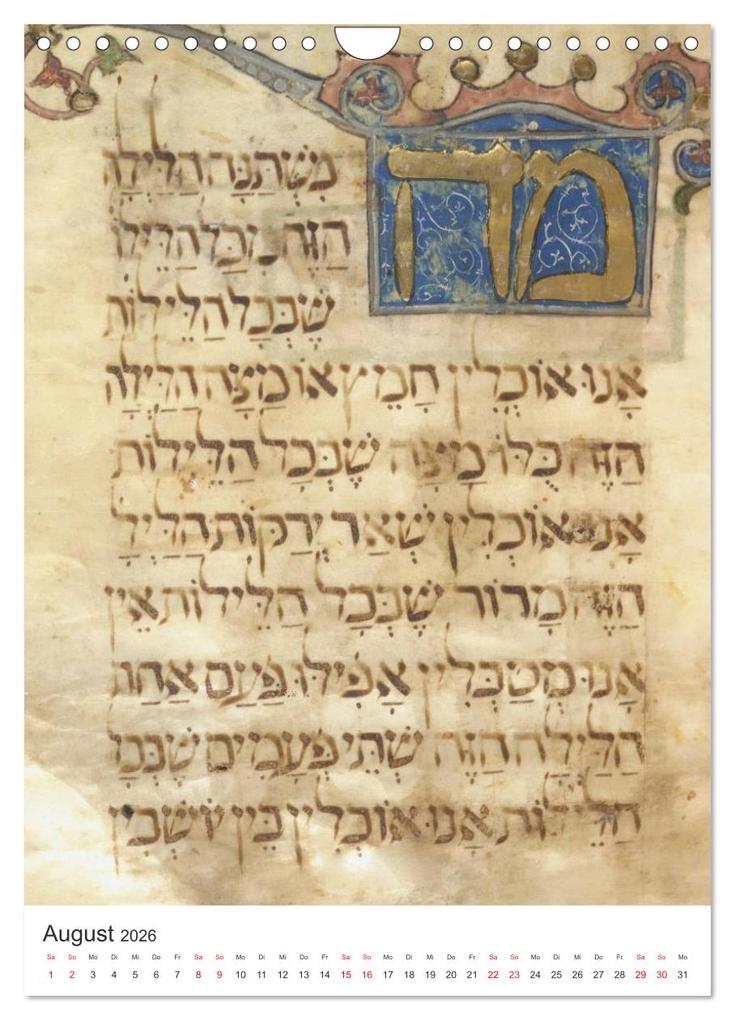 מה
מִשְׁתַּנָּה הַלַּיְלָה
הַזֶּה מִכָּל הַלֵּילוֹ
שֶׁבְּכָל הַלֵּילוֹת
אָנוּ אוֹכְלִין חָמֵץ אוֹ מַצָּה הַלַּיְלָה
הַזֶּה כֻּלּוֹ מַצָּה שֶׁבְּכָל הַלֵּילוֹת
אָנוּ אוֹכְלִין שְׁאַר יְרָקוֹת הַלַּיְלָ
הַזֶּה מָרוֹר שֶׁבְּכָל הַלֵּילוֹת אֵין
אָנוּ מְטַבְּלִין אֲפִילּוּ פַּעַם אַחַת
הַלַּיְלָה הַזֶּה שְׁתֵּי פְעָמִים שֶׁבְּכָ
הַלֵּילוֹת אָנוּ אוֹכְלִין בֵּין יוֹשְׁבִין
August 2026
Sa So Mo Di Mi Do Fr Sa So Mo Di Mi Do Fr Sa So Mo Di Mi Do Fr Sa So Mo Di Mi Do Fr Sa So Mo
1 2 3 4 5 6 7 8 9 10 11 12 13 14 15 16 17 18 19 20 21 22 23 24 25 26 27 28 29 30 31